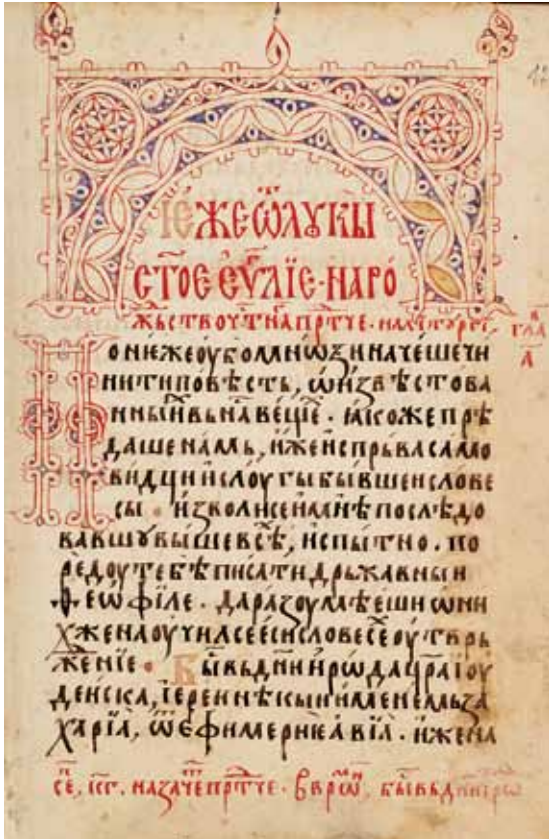 ІЄ́ЖЕ Ѿ ЛꙊКЫ
СТ҃ОЕ ЄѴ҃ЛЇЕ · НАРО́
жьствоу прⷣтче ·
в҃
ГЛА
а҃
Понѥже оубо мнѡѕи начеше чи
нити повѣсть, ѡ извѣстова
нныⷯ вь наⷭ҇ вещїе · ꙗкоже прѣ
даше намь, иже испрьва само
видци и слоугы бывшеи слове
сы · изволисе и мнѣ послѣдо
вавшꙋ выше всѣ, испытно · по
редоу тебѣ писати дрьжавныи
Ѳеѡфїле · да разоумѣеши ѡ ни
хже наоучилсе еси словесе оутврь
жⷣенїе · Быⷭ҇ вь дⷩ҇и ирѡда цр҃а їоу
деиска, їереи нѣкыи именемь за
харїа, ѿ ефимерїе авїа · и жена
се, іс҃г. на зачеⷮ прⷣтче · в врѣⷨ ѡⷩ, быⷭ҇ вь дⷩ҇и